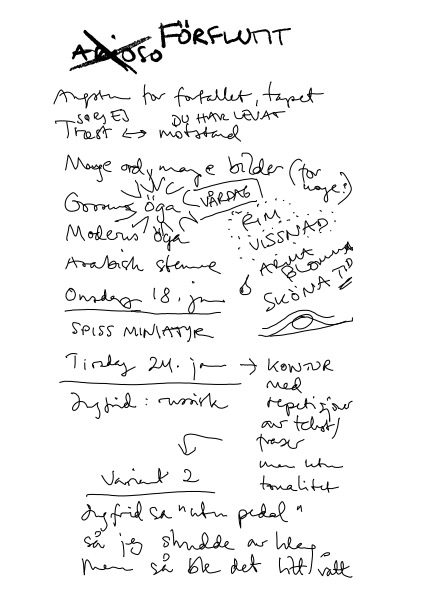 ARIOSO FÖRFLUTIT
Angsten for forfallet, tapet
SÖRJ EJ DU HAR LEVAT
Trøst ↔ motstand
Mange ord, mange bilder (for mange?)
Gorrans öga VÅRDAG
Moderns öga
RIM
VISSNAD
Arabisk stemme
ARMA BLOMMA
SKÖNA TID
Onsdag 18. jan
SPISS MINIATYR
Tirsdag 24. jan → KONTUR
med
repetisjoner
av tekst/
fraser
men uten
tonalitet
Ingfrid: russisk
Variant 2
Ingfrid sa "uten pedal"
så jeg skrudde av klang
Men så ble det litt vått